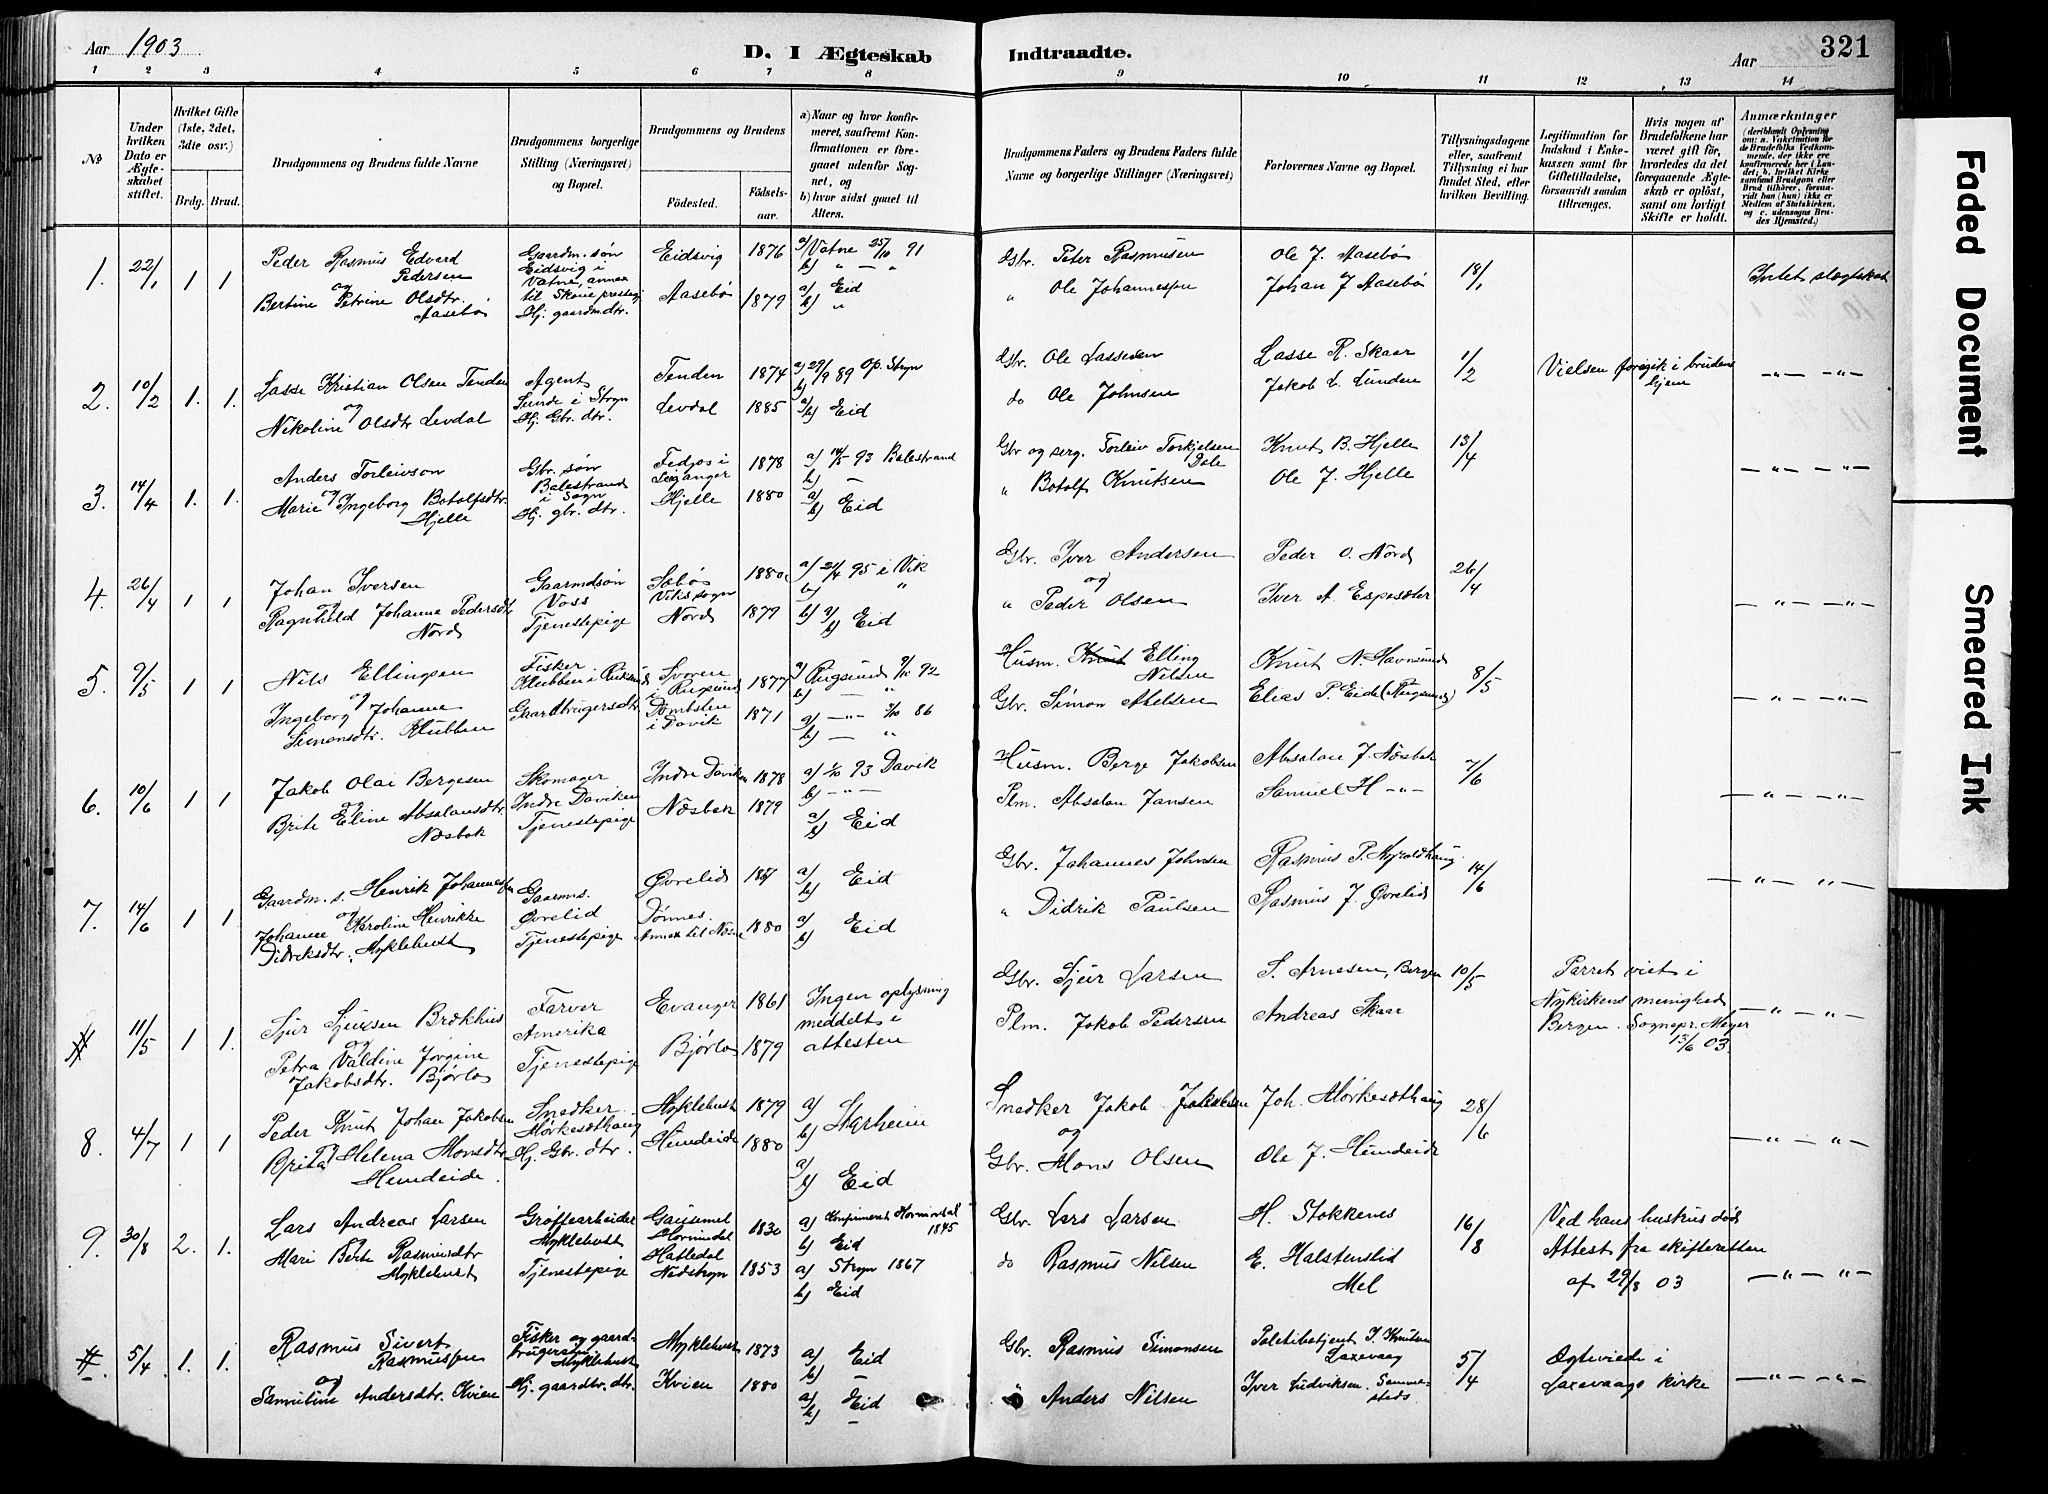 Aar 1903
D. I Ægteskab Indtraadte.
Aar
321
1 2 3 4 5 6 7 8 9 10 11 12 13 14
№
Under hvilken Dato er Ægteskabet stiftet.
Hvilket Gifte (1ste, 2det, 3die osv.)
Brdg. Brud.
Brudgommens og Brudens fulde Navne
Brudgommens borgerlige Stilling (Næringsvei) og Bopæl.
Brudgommens og Brudens
Fødested.
Fødselsaar.
a) Naar og hvor konfirmeret, saafremt Konfirmationen er foregaaet udenfor Sognet, og
b) hvor sidst gaaet til Alters.
Brudgommens Faders og Brudens Faders fulde Navne og borgerlige Stillinger (Næringsvei)
Forlovernes Navne og Bopæl.
Tillysningsdagene eller, saafremt Tillysning ei har fundet Sted, efter hvilken Bevilling.
Legitimation for Indskud i Enkekassen samt for Giftetilladelse, forsaavidt saadan tiltrænges.
Hvis nogen af Brudefolkene har været gift før, hvorledes da det foregaaende Ægteskab er opløst, samt om lovligt Skifte er holdt.
Anmærkninger
(deriblandt Oplysning om: a. Vaccination for de Brudefolks Vedkommende, der ikke ere konfirmerede her i Landet; b. hvilket Kirkesamfund Brudgom eller Brud tilhører, forsaavidt han (hun) ikke er Medlem af Statskirken, og c. udensogns Brudes Hjemsted.)
1. 22/1 1 1
Peder Rasmus Edvard Pedersen
og
Bertine Petrine Olsdtr. Aasebø
Gaardm. søn
Eidsvig i
Vatne, annex
Hj. gaardm. dtr.
Eidsvig 1876
Aasebø 1879
a) Vatne 25/10 91
b) " - "
a) Eid
b) "
Gbr. Peter Rasmussen
" Ole Johannessen
Ole J. Aasebø
Johan J Aasebø
18/1
Intet slegtskab
2. 10/2 1. 1.
Lasse Kristian Olsen Tenden
og
Nikoline Olsdtr Levdal
Agent
Sunde i Stryn
Hj. Gbr. dtr.
Tenden 1874
Levdal 1885
a) 29/9 89 Op. Stryn
b)
a/b) Eid
Gbr. Ole Lassesen
do Ole Johnsen
Lasse R. Skaar
Jakob L. Lunden
1/2
Vielsen foregik i brudens hjem
— " — — " —
3. 14/4 1. 1.
Anders Torleivson
og
Marie Ingeborg Botolfsdtr. Hjelle
Gbr. søn
Balestrand
i Sogn
Hj. gbr. dtr.
Fedjos i
Leiganger 1878
Hjelle 1880
a) 14/5 93 Balestrand
b) —
a/b) Eid
Gbr og serg. Torleiv Torkjelsen Dale
" Botolf Knutsen
Knut B. Hjelle
Ole J. Hjelle
13/4
— " — — " —
4. 26/4 1 1
Johan Iversen
og
Ragnhild Johanne Pedersdtr Nord
Gaarmdsøn
Voss
Tjenestepige
Sæbø
Viks sogn 1880
Nord 1879
a) 21/4 95 i Vik
b) "
a/b) Eid
Gbr. Iver Andersen
og
" Peder Olsen
Peder O. Nord
Iver A. Espesæter
26/4
— " — — " —
5. 9/5 1 1
Nils Ellingsen
og
Ingeborg Johanne
Simonsdtr. Klubben
Fisker
Klubben i Ruksund
Gaardbrugersdtr.
Svoren
i Rugsund 1877
Dombsten
i Davik 1871
a) Rugsund 9/10 92
b) — "
a) — " — 3/10 86
b) — "
Husm. Knut Elling Nilsen
Gbr. Simon Akselsen
Knut N. Havnsund
Elias P. Eide (Rugsund)
8/5
— " — — " —
6. 10/6 1 1
Jakob Olai Bergesen
og
Brite Eline Absalonsdtr. Næsbak
Skomager
Indre Daviken
Tjenestepige
Indre Daviken 1878
Næsbak 1879
a) 1/10 93 Davik
b) — " —
a/b) Eid
Husm. Berge Jakobsen
Plm. Absalon Jansen
Absalon J. Næsbak
Samuel H — " —
7/6
— " — — " —
7. 14/6 1 1
Gaardm. s. Henrik Johannessen
og
Johanne Karoline Henrikke
Didriksdtr. Myklebust
Gaarms.
Øvrelid
Tjenestepige
Øvrelid
Dønnes.
Annex til Næsne 1880
a/b) Eid
a/b) Eid
Gbr. Johannes Johnsen
" Didrik Paulsen
Rasmus P. Myroldhaug
Rasmus J. Øvrelid
14/6
— " — " —
# 11/5 1 1.
Sjur Sjursen Brækhus
og
Petra Valdine Jørgine
Jakobsdtr. Bjørlo
Farver
Amerika
Tjenestepige
Evanger 1861
Bjørlo 1879
Ingen oplysning
meddelt i
attesten
Gbr. Sjur Larsen
Plm. Jakob Pedersen
S. Arnesen, Bergen
Andreas Skaar
10/5
Parret viet i
Nykirkens menighed
Bergen. Sognepr. Meyer
13/6 03.
— " — — " —
8. 4/7 1 1
Peder Knut Johan Jakobsen
og
Brita Helena Monsdtr. Hundeide.
Snedker
Mørkesdthaug
Hj. Gbr. dtr.
Myklebust 1879
Hundeide 1880
a/b) Starheim
a/b) Eid
Snedker Jakob Jakobsen
og
Gbr. Mons Olsen
Joh. Mørkesdthaug
Ole J. Hundeide
28/6
— " — — " —
9. 30/8 2. 1.
Lars Andreas Larsen
Mari Berte Rasmusdtr Myklebust
Grøftearbeider
Myklebust
Tjenestepige
Gausemel
Hornindal 1830
Hatledal
Nedstryn 1853
a) Konfirmeret Hornindal 1845
b) Eid
a) Stryn 1867
b) Eid
Gbr. Lars Larsen
do Rasmus Nilsen
H. Stokkenes
E. Halstenslid
Mel
16/8
Ved hans hustrus død
Attest fra skifteretten
af 29/8 03
— " — — " —
# 5/4 1. 1.
Rasmus Sivert Rasmussen
og
Samueline Andersdtr. Kvien
Fisker og gaard-
brugersøn
Myklebust
Hj. gaardbr. dtr.
Myklebust 1873
Kvien 1880
a) Eid
b) —
a) Eid
b) —
Gbr. Rasmus Simonsen
" Anders Nilsen
Politibetjent J. Knutsen
Laxevaag
Iver Ludviksen.
5/4
Ægteviede i
Laxevaags kirke
— " — — " —
Faded Document
Smeared Ink